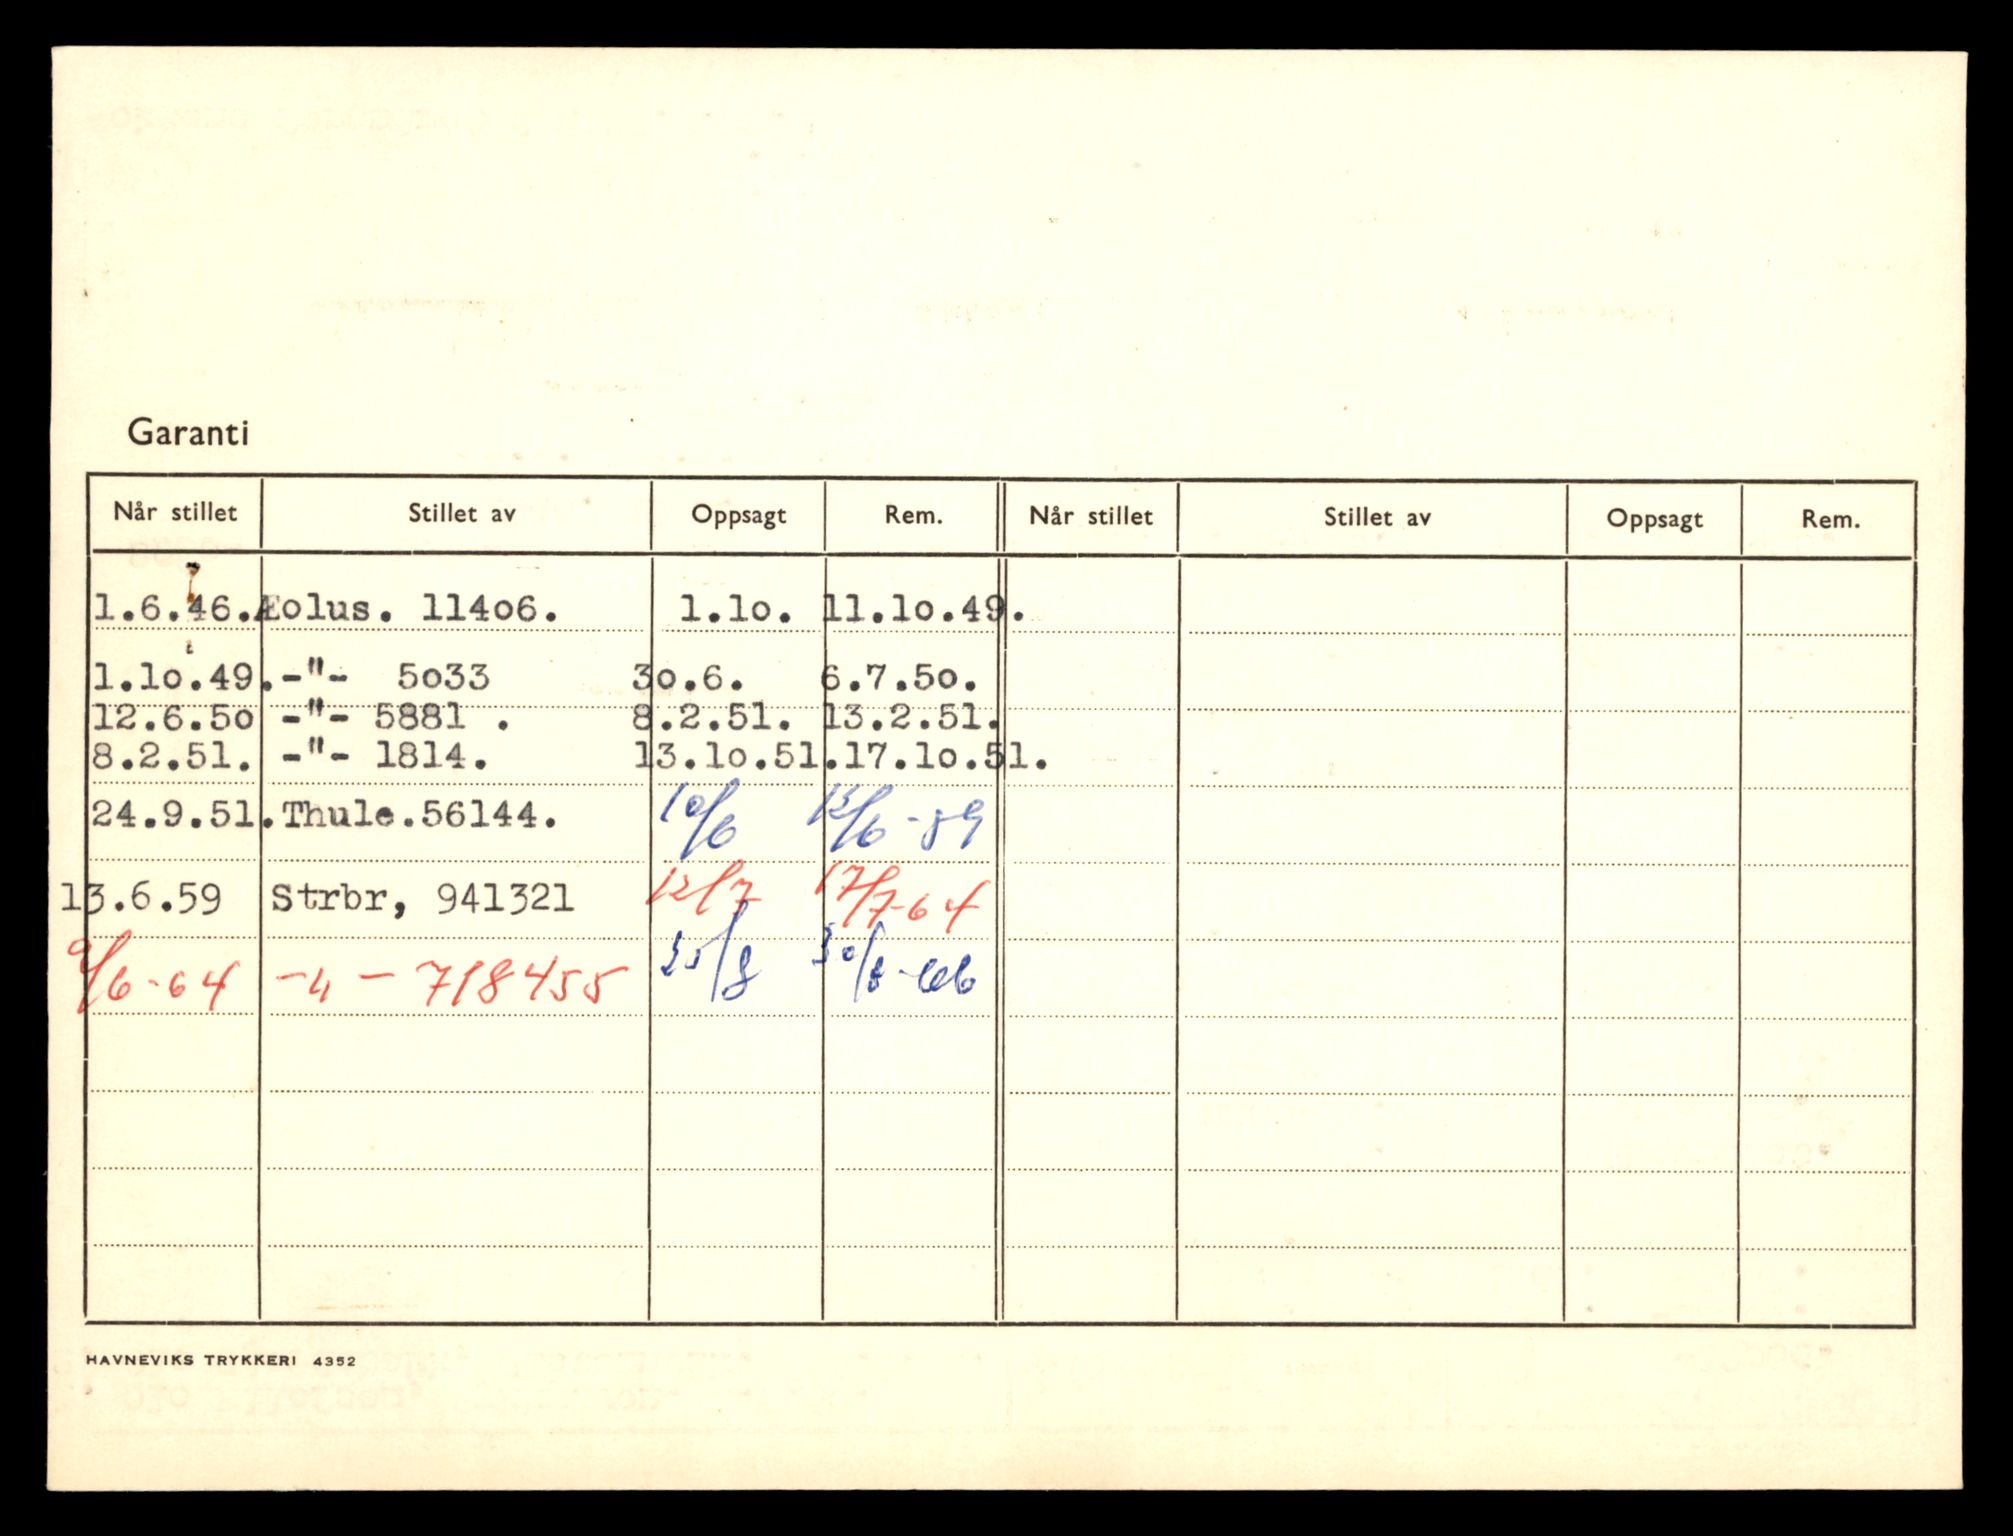 Garanti
Når stillet Stillet av Oppsagt Rem. Når stillet Stillet av Oppsagt Rem.
1.6.46. Æolus. 11406. 1.10. 11.10.49.
1.10.49. -"- 5033 30.6. 6.7.50.
12.6.50 -"- 5881 . 8.2.51. 13.2.51.
8.2.51. -"- 1814. 13.10.51. 17.10.51.
24.9.51. Thule. 56144. 10/6 /6-59
13.6.59 Strbr, 941321 12/7 17/7-64
9/6-64 -"- 718455 25/8 30/8-66
HAVNEVIKS TRYKKERI 4352